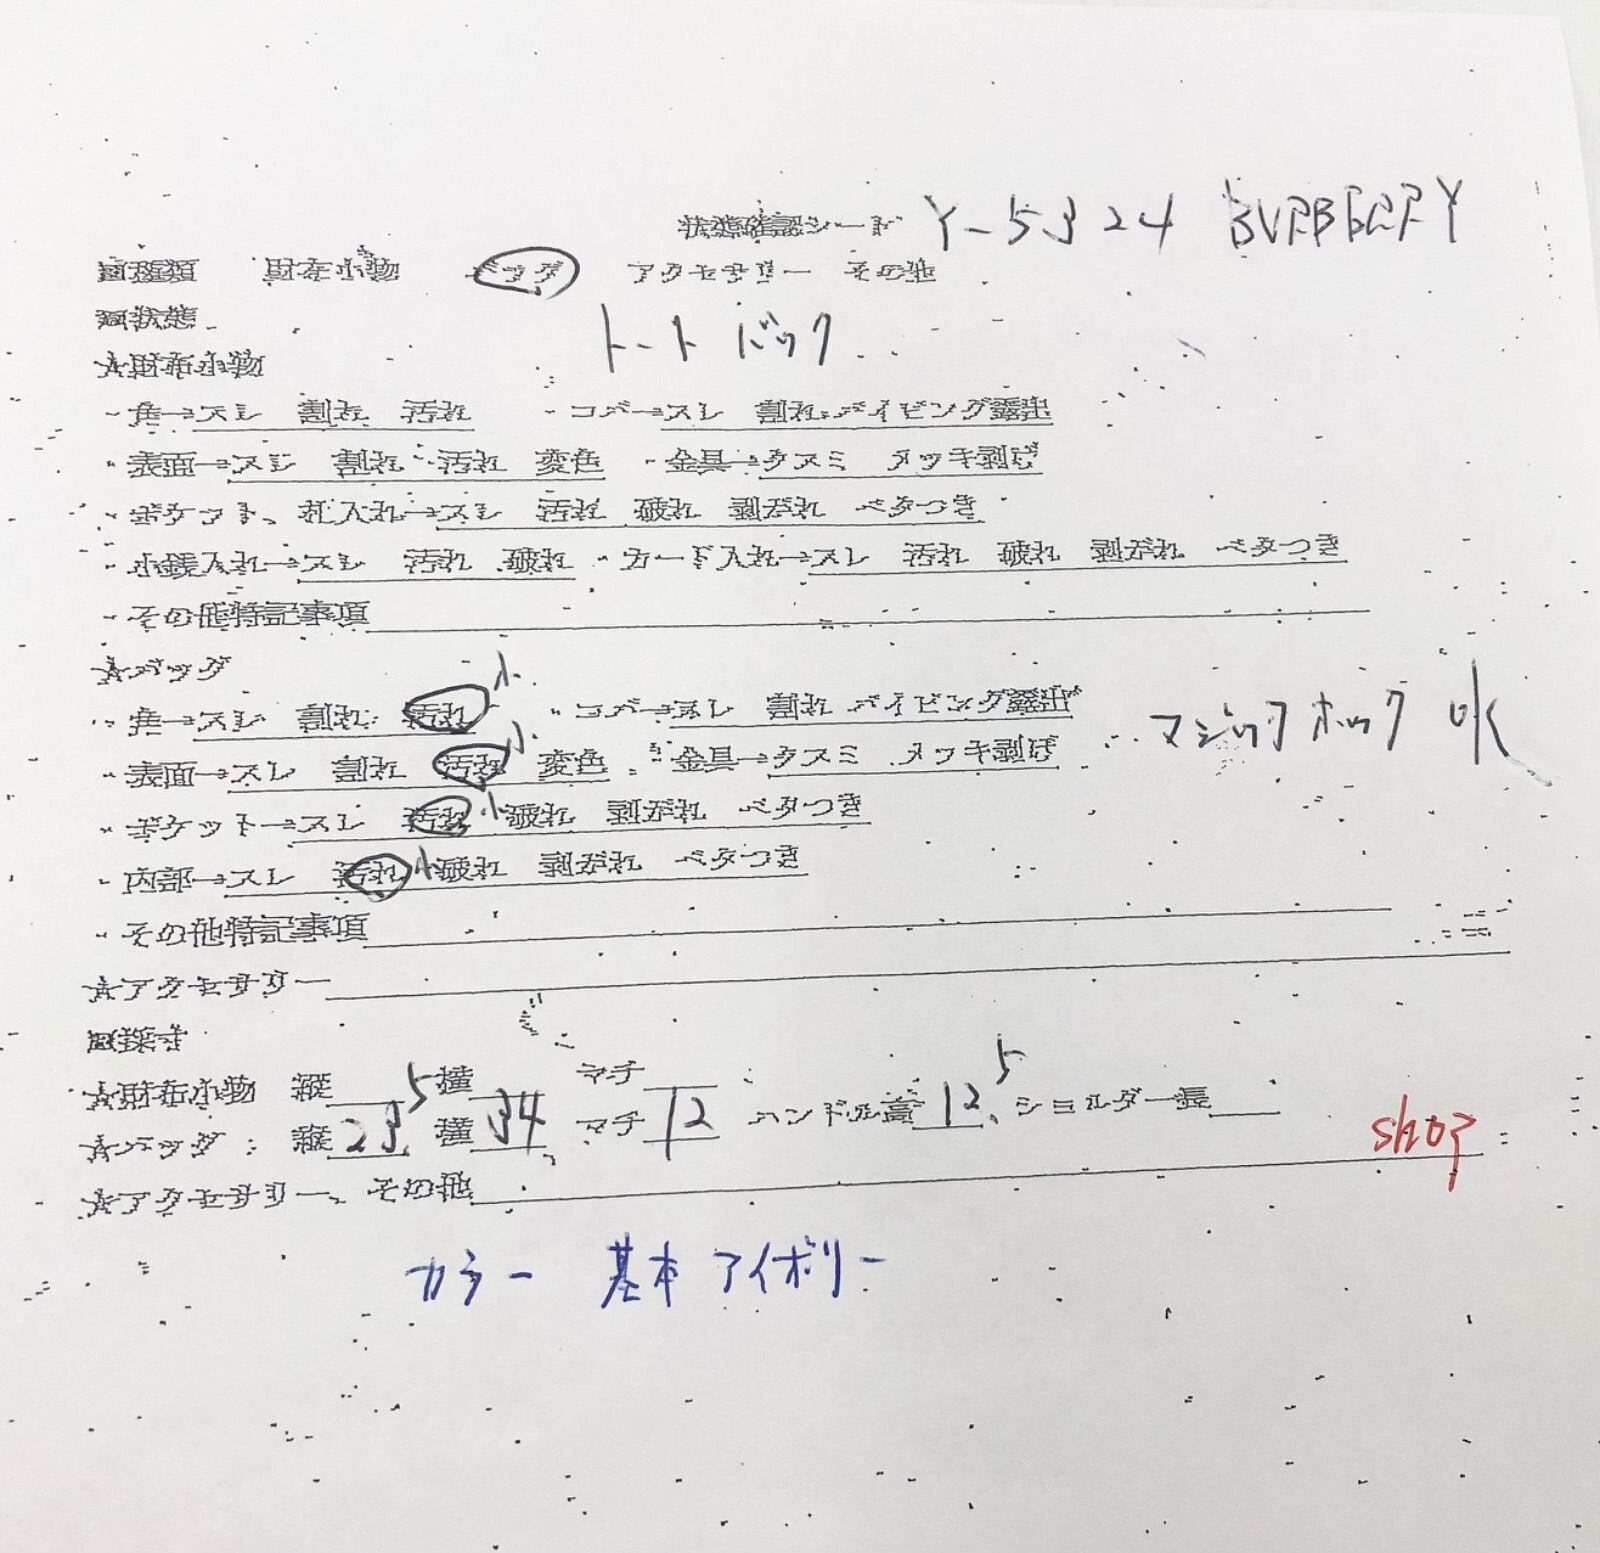 状態確認シート Y-5324 BURBERRY
種類 財布小物 バッグ アクセサリー その他
状態
トートバック
☆財布小物
・角→スレ 割れ 汚れ ・コバ→スレ 割れ パイピング露出
・表面→スレ 割れ 汚れ 変色 ・金具→クスミ メッキ剥げ
・ポケット、札入れ→スレ 汚れ 破れ 剥がれ ベタつき
・小銭入れ→スレ 汚れ 破れ ・カード入れ→スレ 汚れ 破れ 剥がれ ベタつき
・その他特記事項
☆バッグ
・角→スレ 割れ 汚れ 小 ・コバ→スレ 割れ パイピング露出
・表面→スレ 割れ 汚れ 小 変色 ・金具→クスミ メッキ剥げ マジックホック
・ポケット→スレ 汚れ 小 破れ 剥がれ ベタつき
・内部→スレ 汚れ 小 破れ 剥がれ ベタつき
・その他特記事項
☆アクセサリー
採寸
☆財布小物 縦 横 マチ
☆バッグ:縦23.5 横34 マチ12 ハンドル高12.5 ショルダー長
shop
☆アクセサリー、その他
カラー 基本 アイボリー